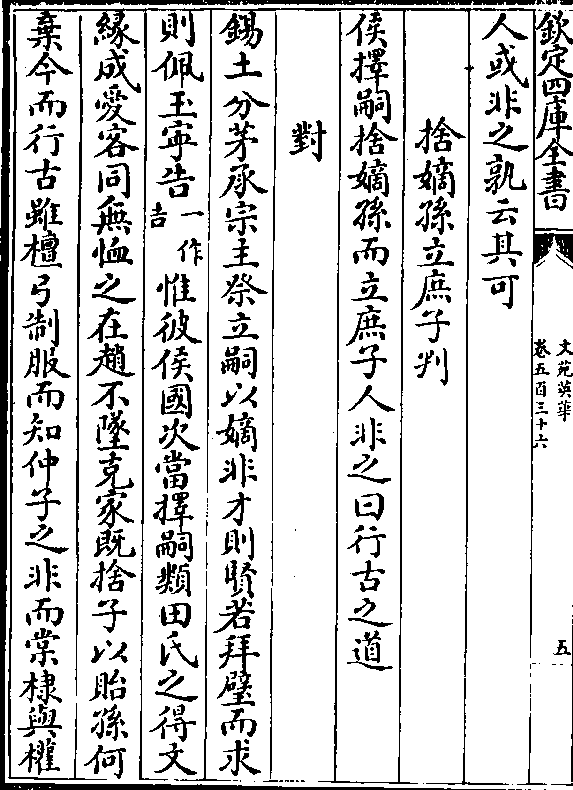 欽定四庫全書
文苑英華
卷五百三十六
五
人或非之孰云其可
捨嫡孫立庶子判
侯擇嗣捨嫡孫而立庶子人非之曰行古之道
對
錫土分茅承宗主祭立嗣以嫡非才則賢若拜璧而求
則佩玉寧告一作吉惟彼侯國次當擇嗣類田氏之得文
緣成愛客同無恤之在趙不墜克家既捨子以貽孫何
棄今而行古雖檀弓制服而知仲子之非而棠棣與權